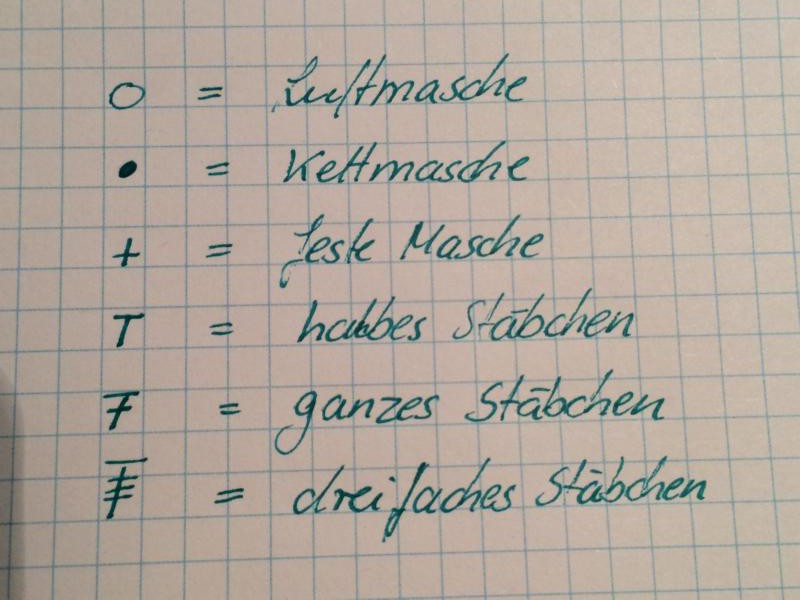 ○ = Luftmasche
● = Kettmasche
+ = feste Masche
T = halbes Stäbchen
Ŧ = ganzes Stäbchen
= dreifaches Stäbchen